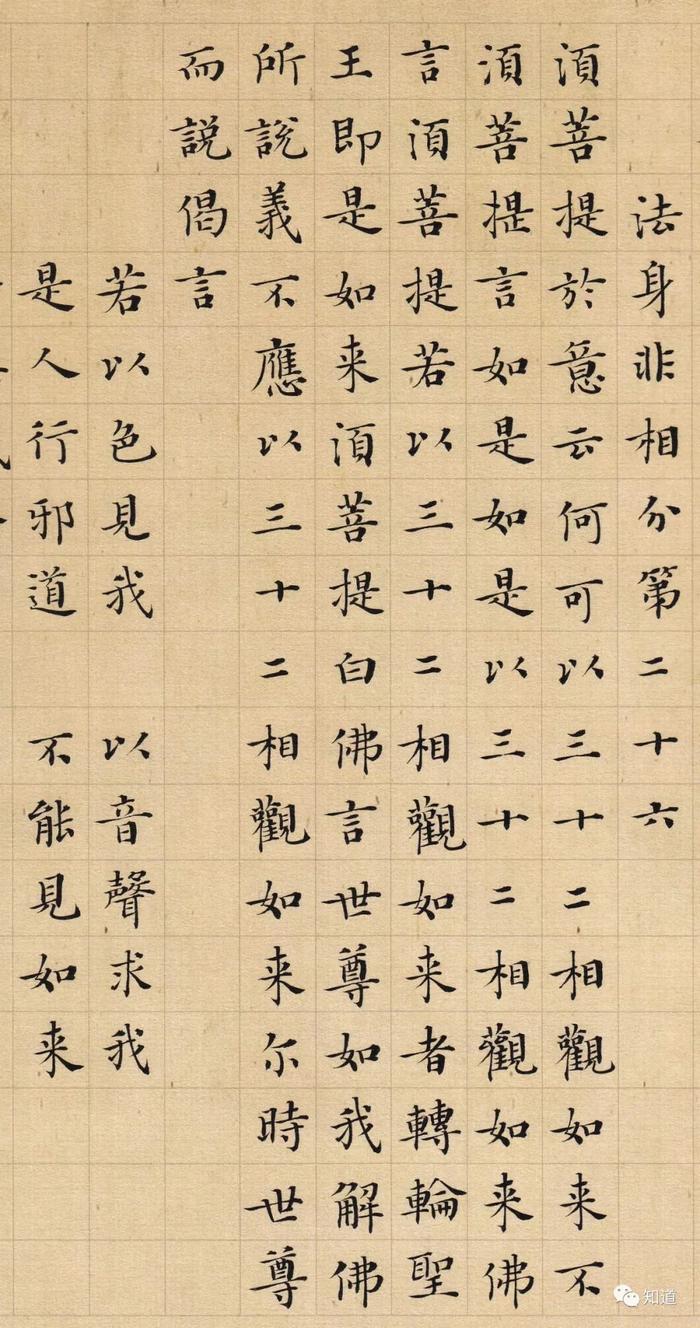 法身非相分第二十六
湏菩提於意云何可以三十二相觀如来不
湏菩提言如是如是以三十二相觀如来佛
言湏菩提若以三十二相觀如来者轉輪聖
王即是如来湏菩提白佛言世尊如我解佛
所說義不應以三十二相觀如来尔時世尊
而説偈言
若以色見我 以音聲求我
是人行邪道 不能見如来
知道